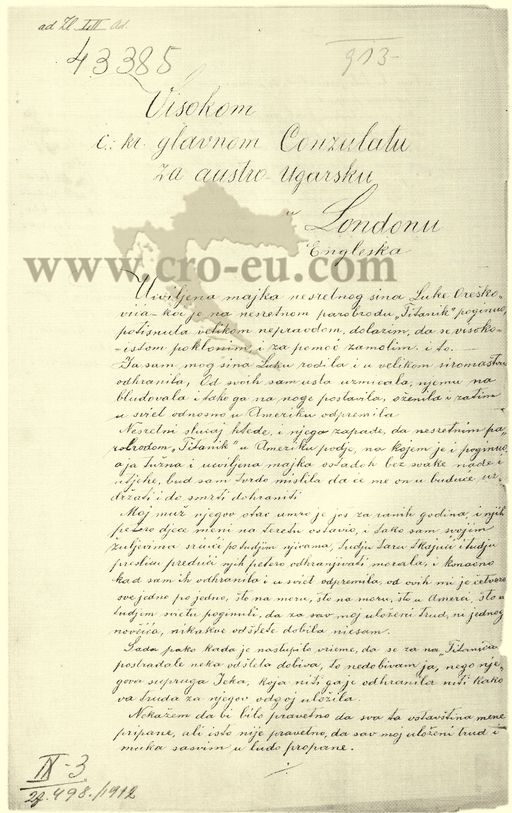 ad Zl. Ad.
43385
913
Visokom
c. kr. glavnom Conzulatu
za austro-Ugarsku
u Londonu
Engleska
www.cro-eu.com
Ucviljena majka nesretnog sina Luke Oreško-
vića koi je na nesretnom parobrodu "Titanik" poginuo,
potisnuta velikom nepravdom, dolazim, da se visoko-
istom poklonim, i za pomoć zamolim. i to.
Ja sam, mog sina Luku rodila i u velikom siromaštvu
odhranila, Od svoih sam usta uzmicala, njemu na
bludovala i tako ga na noge postavila, oženila i zatim
u sviet odnosno u Ameriku odpremila
Nesretni slučaj htede, i njega zapade, da nesretnim pa-
robrodom "Titanik" u Ameriku podje, na kojem je i poginuo,
a ja tužna i ucviljena majka ostadoh bez svake nade i
utjehe, bud sam tvrdo mislila da će me on u buduće uz-
držati i do smrti dohraniti
Moj muž njegov otac umro je još za ranih godina, i njih
petero djece meni na teretu ostavio, i tako sam svojim
žuljevima srućć po tudjim njivama, tudju taru tkajuć i tudju
predivu predući njih petero odhranjivati morala, i konačno
kad sam ih odhranila i u sviet odpremila, od ovih mi je četvoro
sve jedno po jedno, što na moru, što na moru, što u Amerci, što u
tudjem svietu poginuti, da za sav moj uloženi trud, ni jednog
novčića, nikakve odštete dobila niesam.
Sada pako kada je nastupilo vrieme, da se za na "Titanicu"
postradale neka odšteta dobiva, to nedobivam ja, nego nje-
gova supruga Jeka, koja niti ga je odhranila niti kako
va truda za njegov odgoj uložila.
Nekažem da bi bilo pravetno da sva ta ostavština mene
pripane, ali isto nije pravetno, da sav moj uloženi trud i
muka sasvim u ludo propane.
IX-3
498./1912